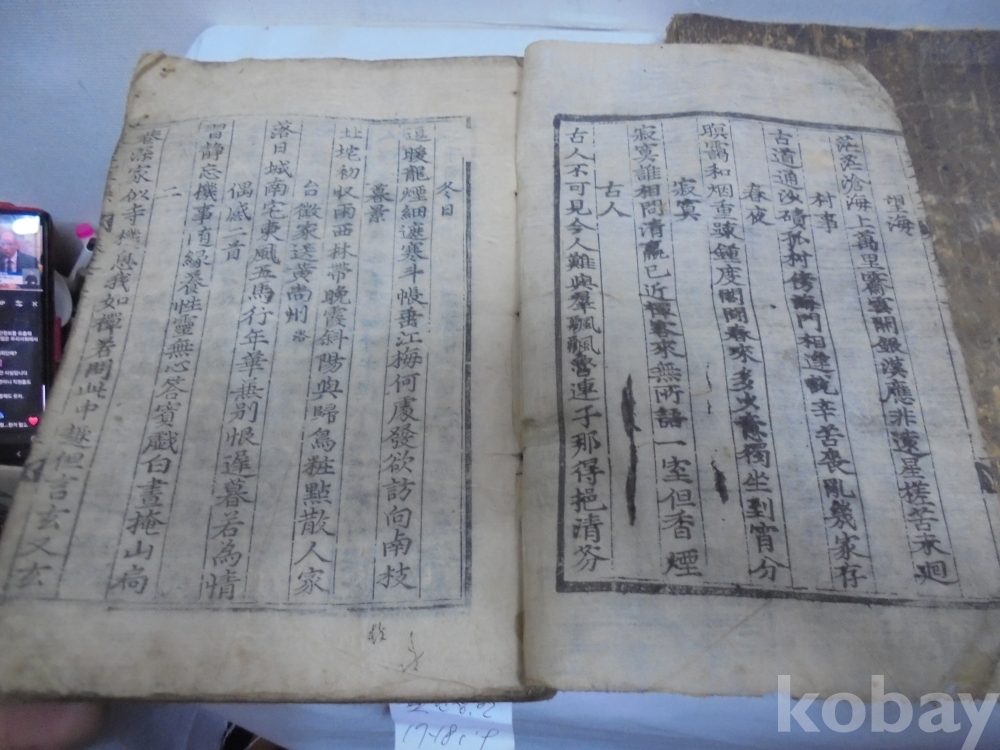 望海
茫茫滄海上萬里霽雲開銀漢應非遠星槎苦未廻
村事
古道通沙磧孤村傍海門相逢說辛苦喪亂幾家存
春夜
暝靄和烟重踈鍾度閤聞春來多少意獨坐到宵分
寂寞
寂寞誰相問清羸已近禪客來無所語一室但香煙
古人
古人不可見今人難與羣飄飄魯連子那得挹清芬
冬日
逗暖龍煙細遮寒斗帳垂江梅何處發欲訪向南枝
暮景
北垞初收雨西林帶晚霞斜陽與歸鳥粧點散人家
台徵家送黃尚州 洛
落日城南宅東風五馬行年華兼別恨遲暮若為情
偶感二首
習静忘機事随緣養性靈無心答賓戲白晝掩山扃
二
菴深家似寺機息我如禪若問此中趣但言玄又玄
kobay